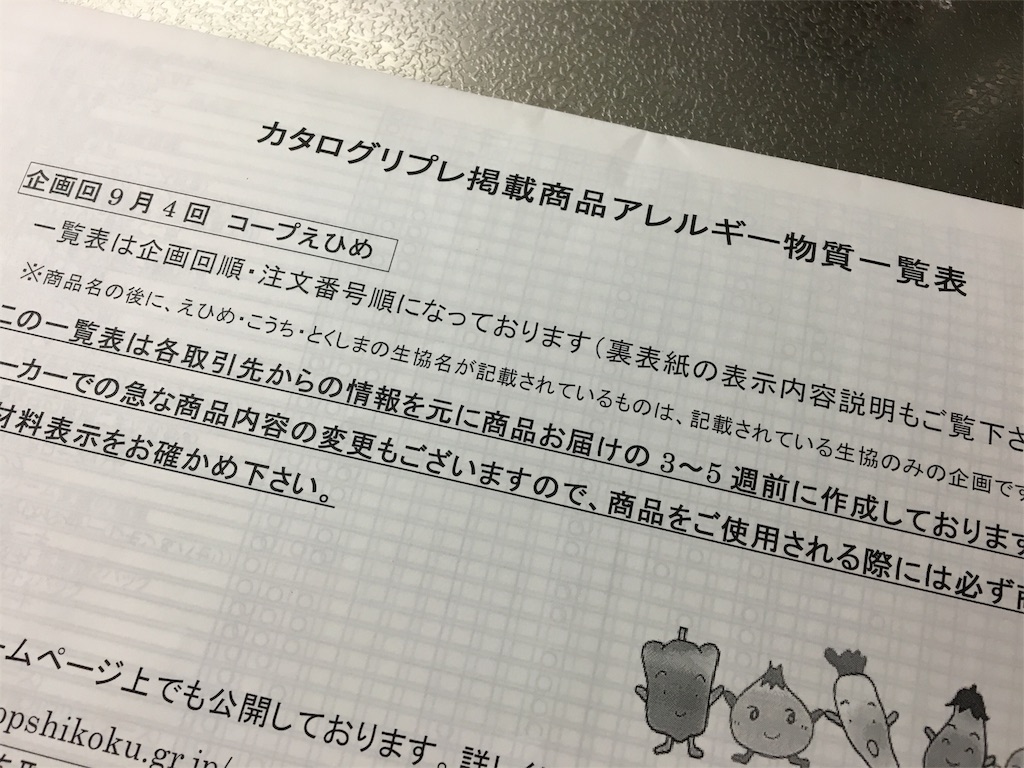 カタログリプレ掲載商品アレルギー物質一覧表
企画回9月4回 コープえひめ
一覧表は企画回順・注文番号順になっております(裏表紙の表示内容説明もご覧下さ
※商品名の後に、えひめ・こうち・とくしまの生協名が記載されているものは、記載されている生協のみの企画です
この一覧表は各取引先からの情報を元に商品お届けの3〜5週前に作成しております
ーカーでの急な商品内容の変更もございますので、商品をご使用される際には必ず
材料表示をお確かめ下さい。
ームページ上でも公開しております。詳しく
opshikoku.gr.jp/